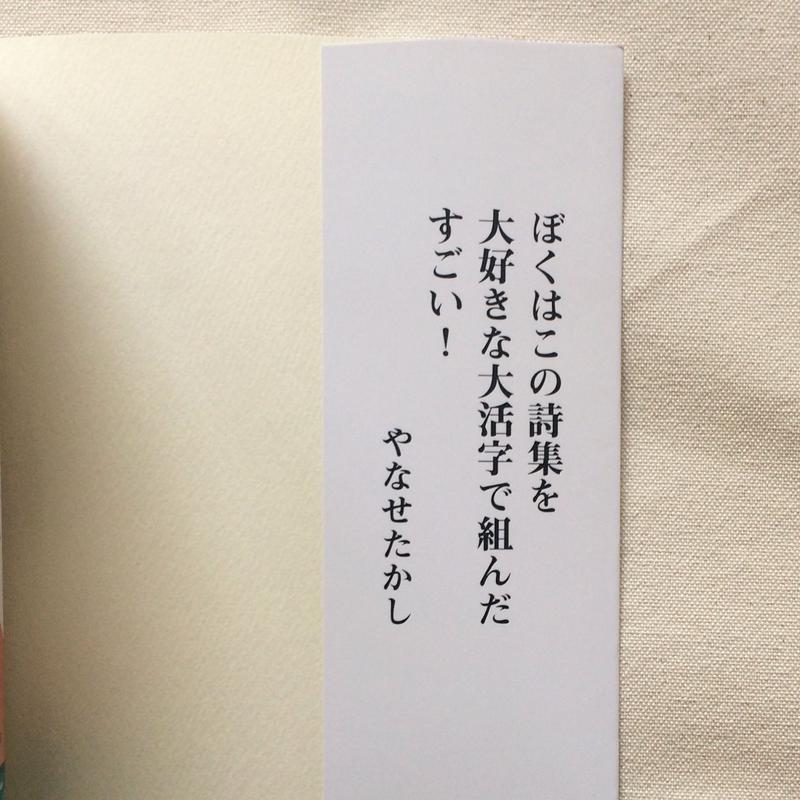 ぼくはこの詩集を
大好きな大活字で組んだ
すごい！
やなせたかし